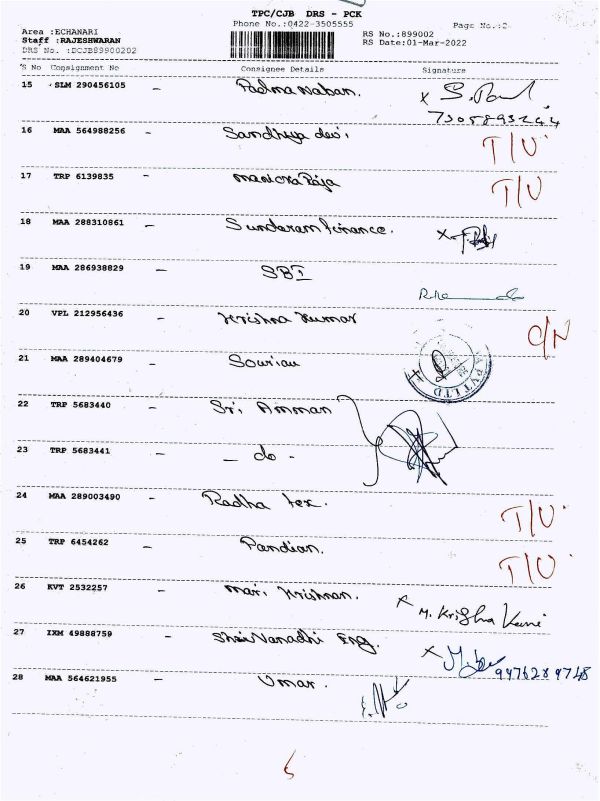 TPC/CJB DRS - PCK
Phone No.:0422-3505555 Page No.:2
Area :ECHANARI RS No.:899002
Staff :RAJESHWARAN RS Date:01-Mar-2022
DRS No. :DCJB89900202
S No Consignment No Consignee Details Signature
15 SLM 290456105 - Padmanaban.
7305893244
16 MAA 564988256 - Sandhya devi. T/U
17 TRP 6139835 - manicka Raja T/U
18 MAA 288310861 - Sundaram finance.
19 MAA 286938829 - SBI
20 VPL 212956436 - Krishna Kumar
21 MAA 289404679 - Souriau PVT LTD
22 TRP 5683440 - Sri Amman
23 TRP 5683441 - do -
24 MAA 289003490 - Radha tex. T/U
25 TRP 6454262 - Pandian. T/U
26 KVT 2532257 - mari Krishnan.
27 IXM 49888759 - Eng. 9476289748
28 MAA 564621955 - Umar.